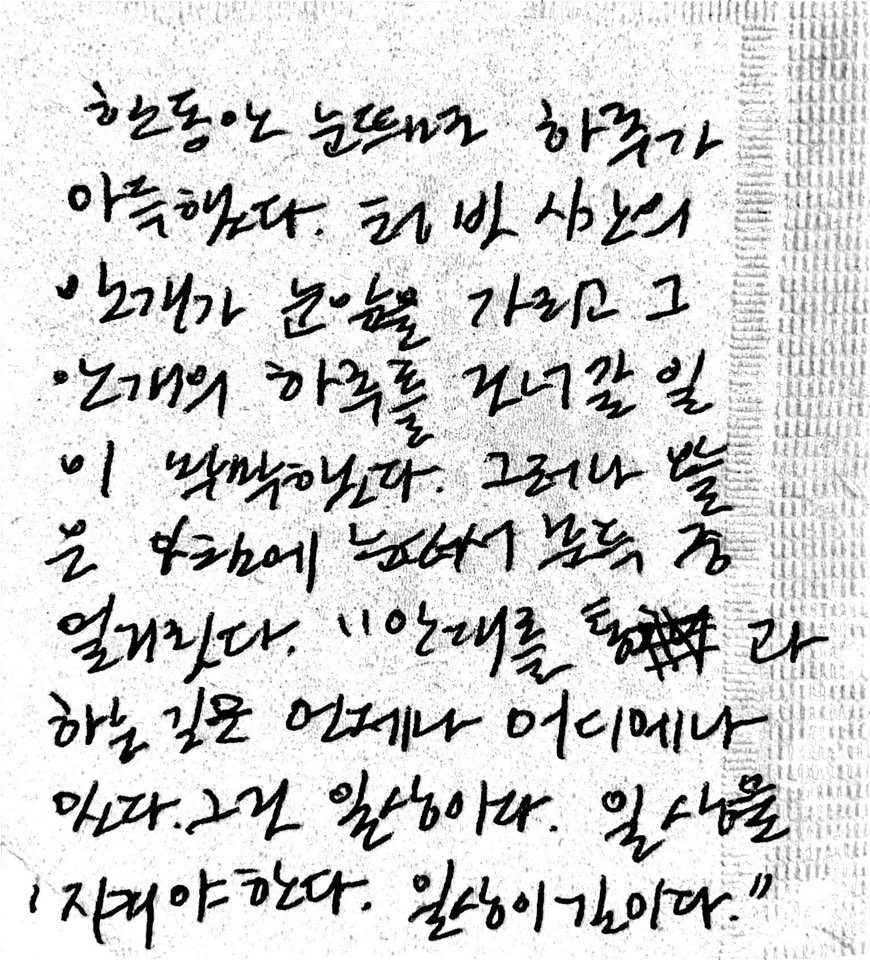 한동안 눈뜨면 하루가
아득했었다. 텅 빈 시간의
안개가 눈앞을 가리고 그
안개의 하루를 건너갈 일
이 막막했었다. 그러나 오늘
은 아침에 눈떠서 문득 중
얼거렸다. "안개를 통과
하는 길은 언제나 어디에나
있다. 그건 일상이다. 일상을
지켜야한다. 일상이 길이다."